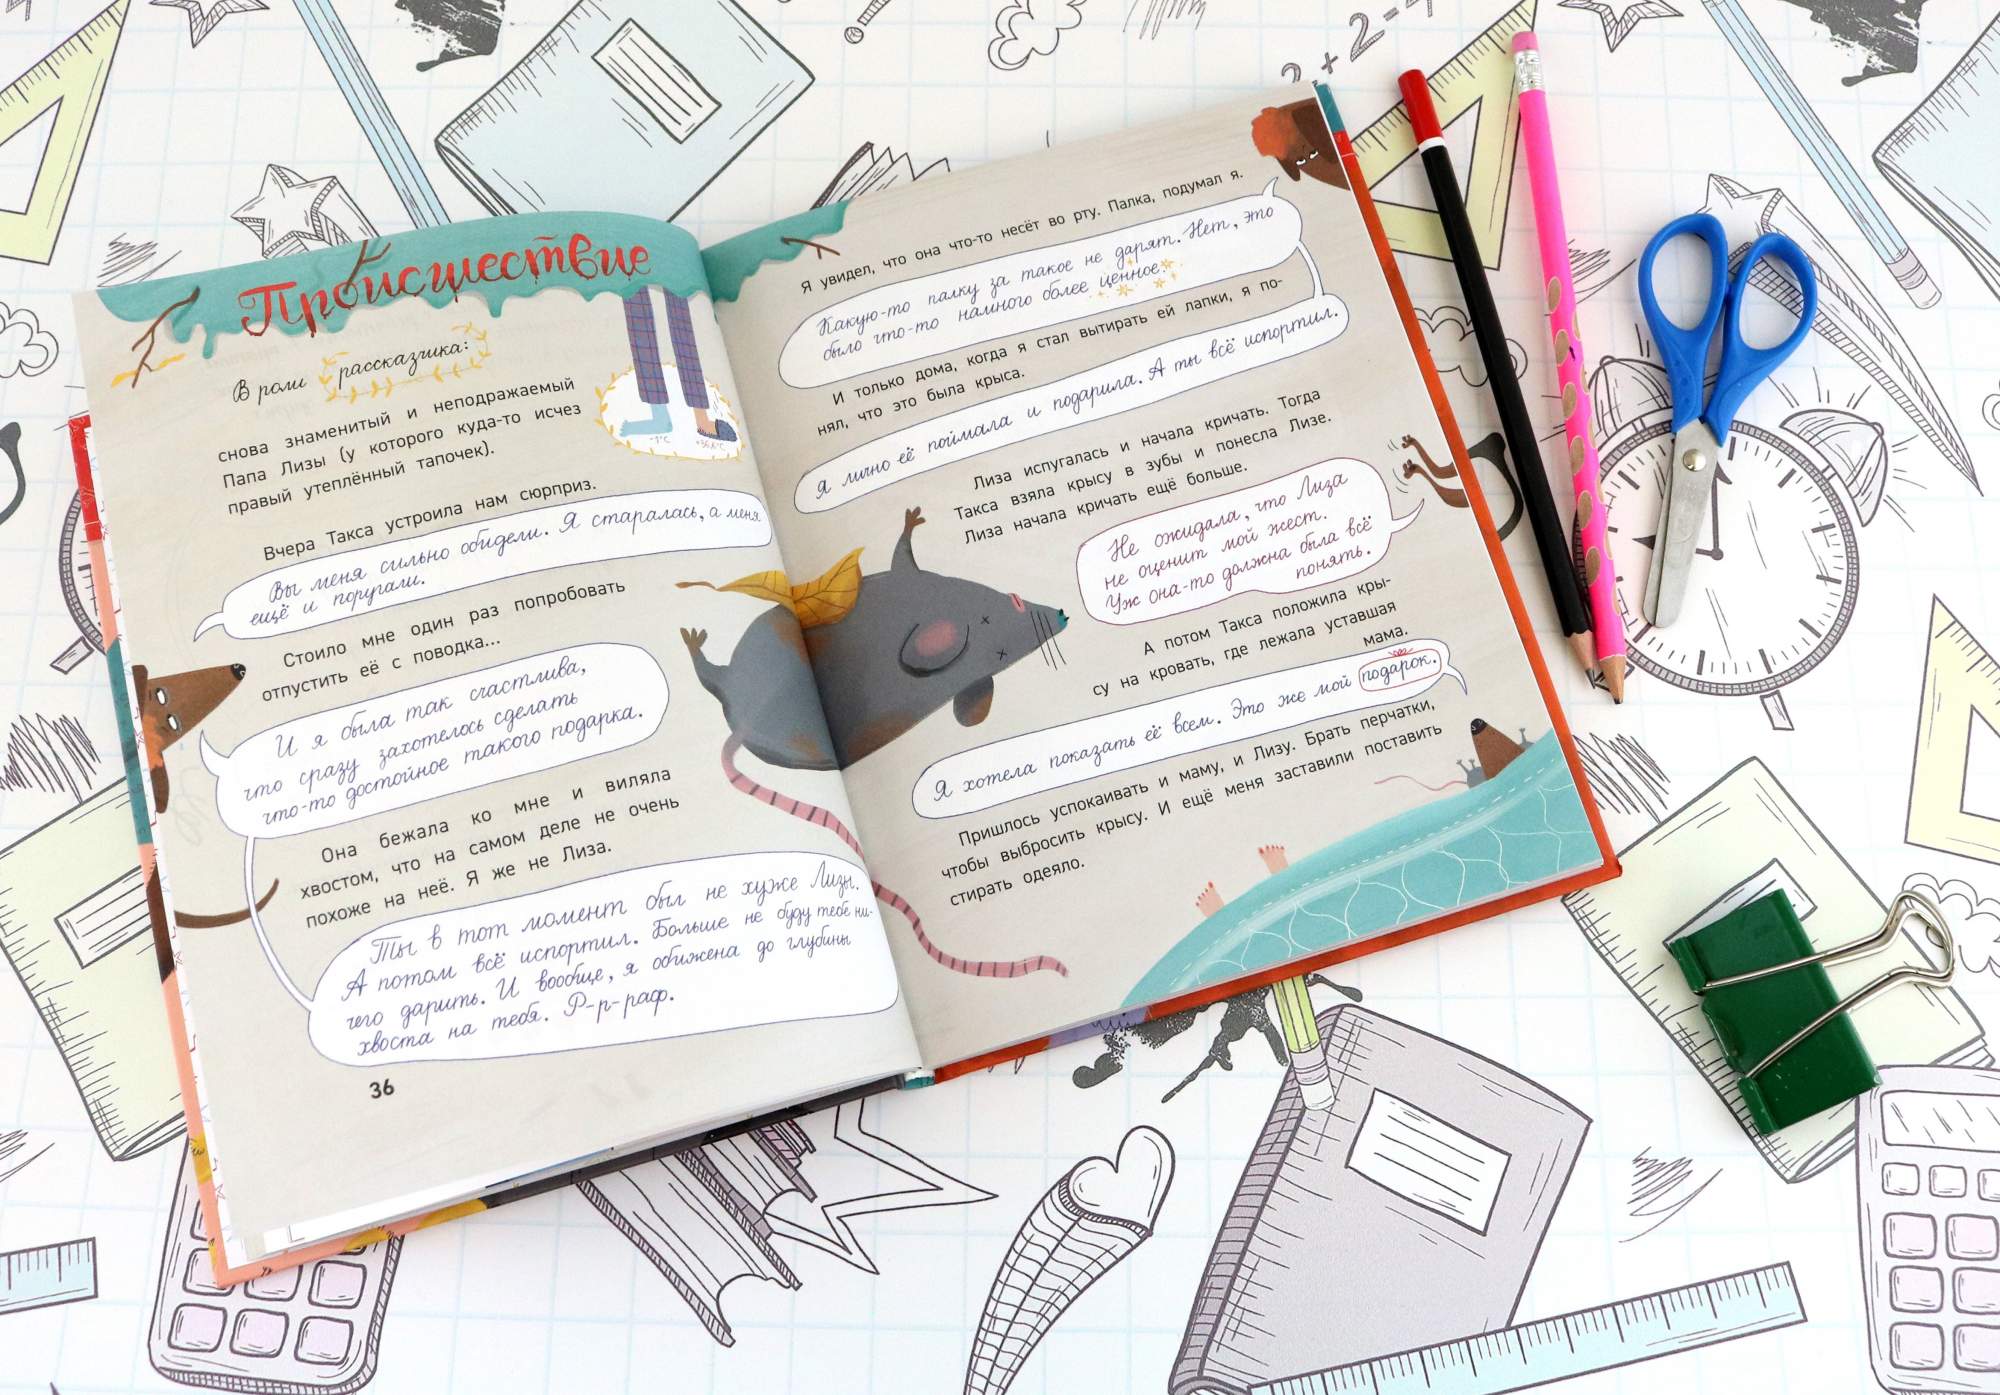 Происшествие
В роли рассказчика:
снова знаменитый и неподражаемый
Папа Лизы (у которого куда-то исчез
правый утеплённый тапочек).
-1°C
+36,6°C
Вчера Такса устроила нам сюрприз.
Вы меня сильно обидели. Я старалась, а меня
ещё и поругали.
Стоило мне один раз попробовать
отпустить её с поводка...
И я была так счастлива,
что сразу захотелось сделать
что-то достойное такого подарка.
Она бежала ко мне и виляла
хвостом, что на самом деле не очень
похоже на неё. Я же не Лиза.
Ты в тот момент был не хуже Лизы.
А потом всё испортил. Больше не буду тебе ни-
чего дарить. И вообще, я обижена до глубины
хвоста на тебя. Р-р-раф.
36
Я увидел, что она что-то несёт во рту. Палка, подумал я.
Какую-то палку за такое не дарят. Нет, это
было что-то намного более ценное.
И только дома, когда я стал вытирать ей лапки, я по-
нял, что это была крыса.
Я лично её поймала и подарила. А ты всё испортил.
Лиза испугалась и начала кричать. Тогда
Такса взяла крысу в зубы и понесла Лизе.
Лиза начала кричать ещё больше.
Не ожидала, что Лиза
не оценит мой жест.
Уж она-то должна была всё
понять.
А потом Такса положила кры-
су на кровать, где лежала уставшая
мама.
Я хотела показать её всем. Это же мой подарок.
Пришлось успокаивать и маму, и Лизу. Брать перчатки,
чтобы выбросить крысу. И ещё меня заставили поставить
стирать одеяло.